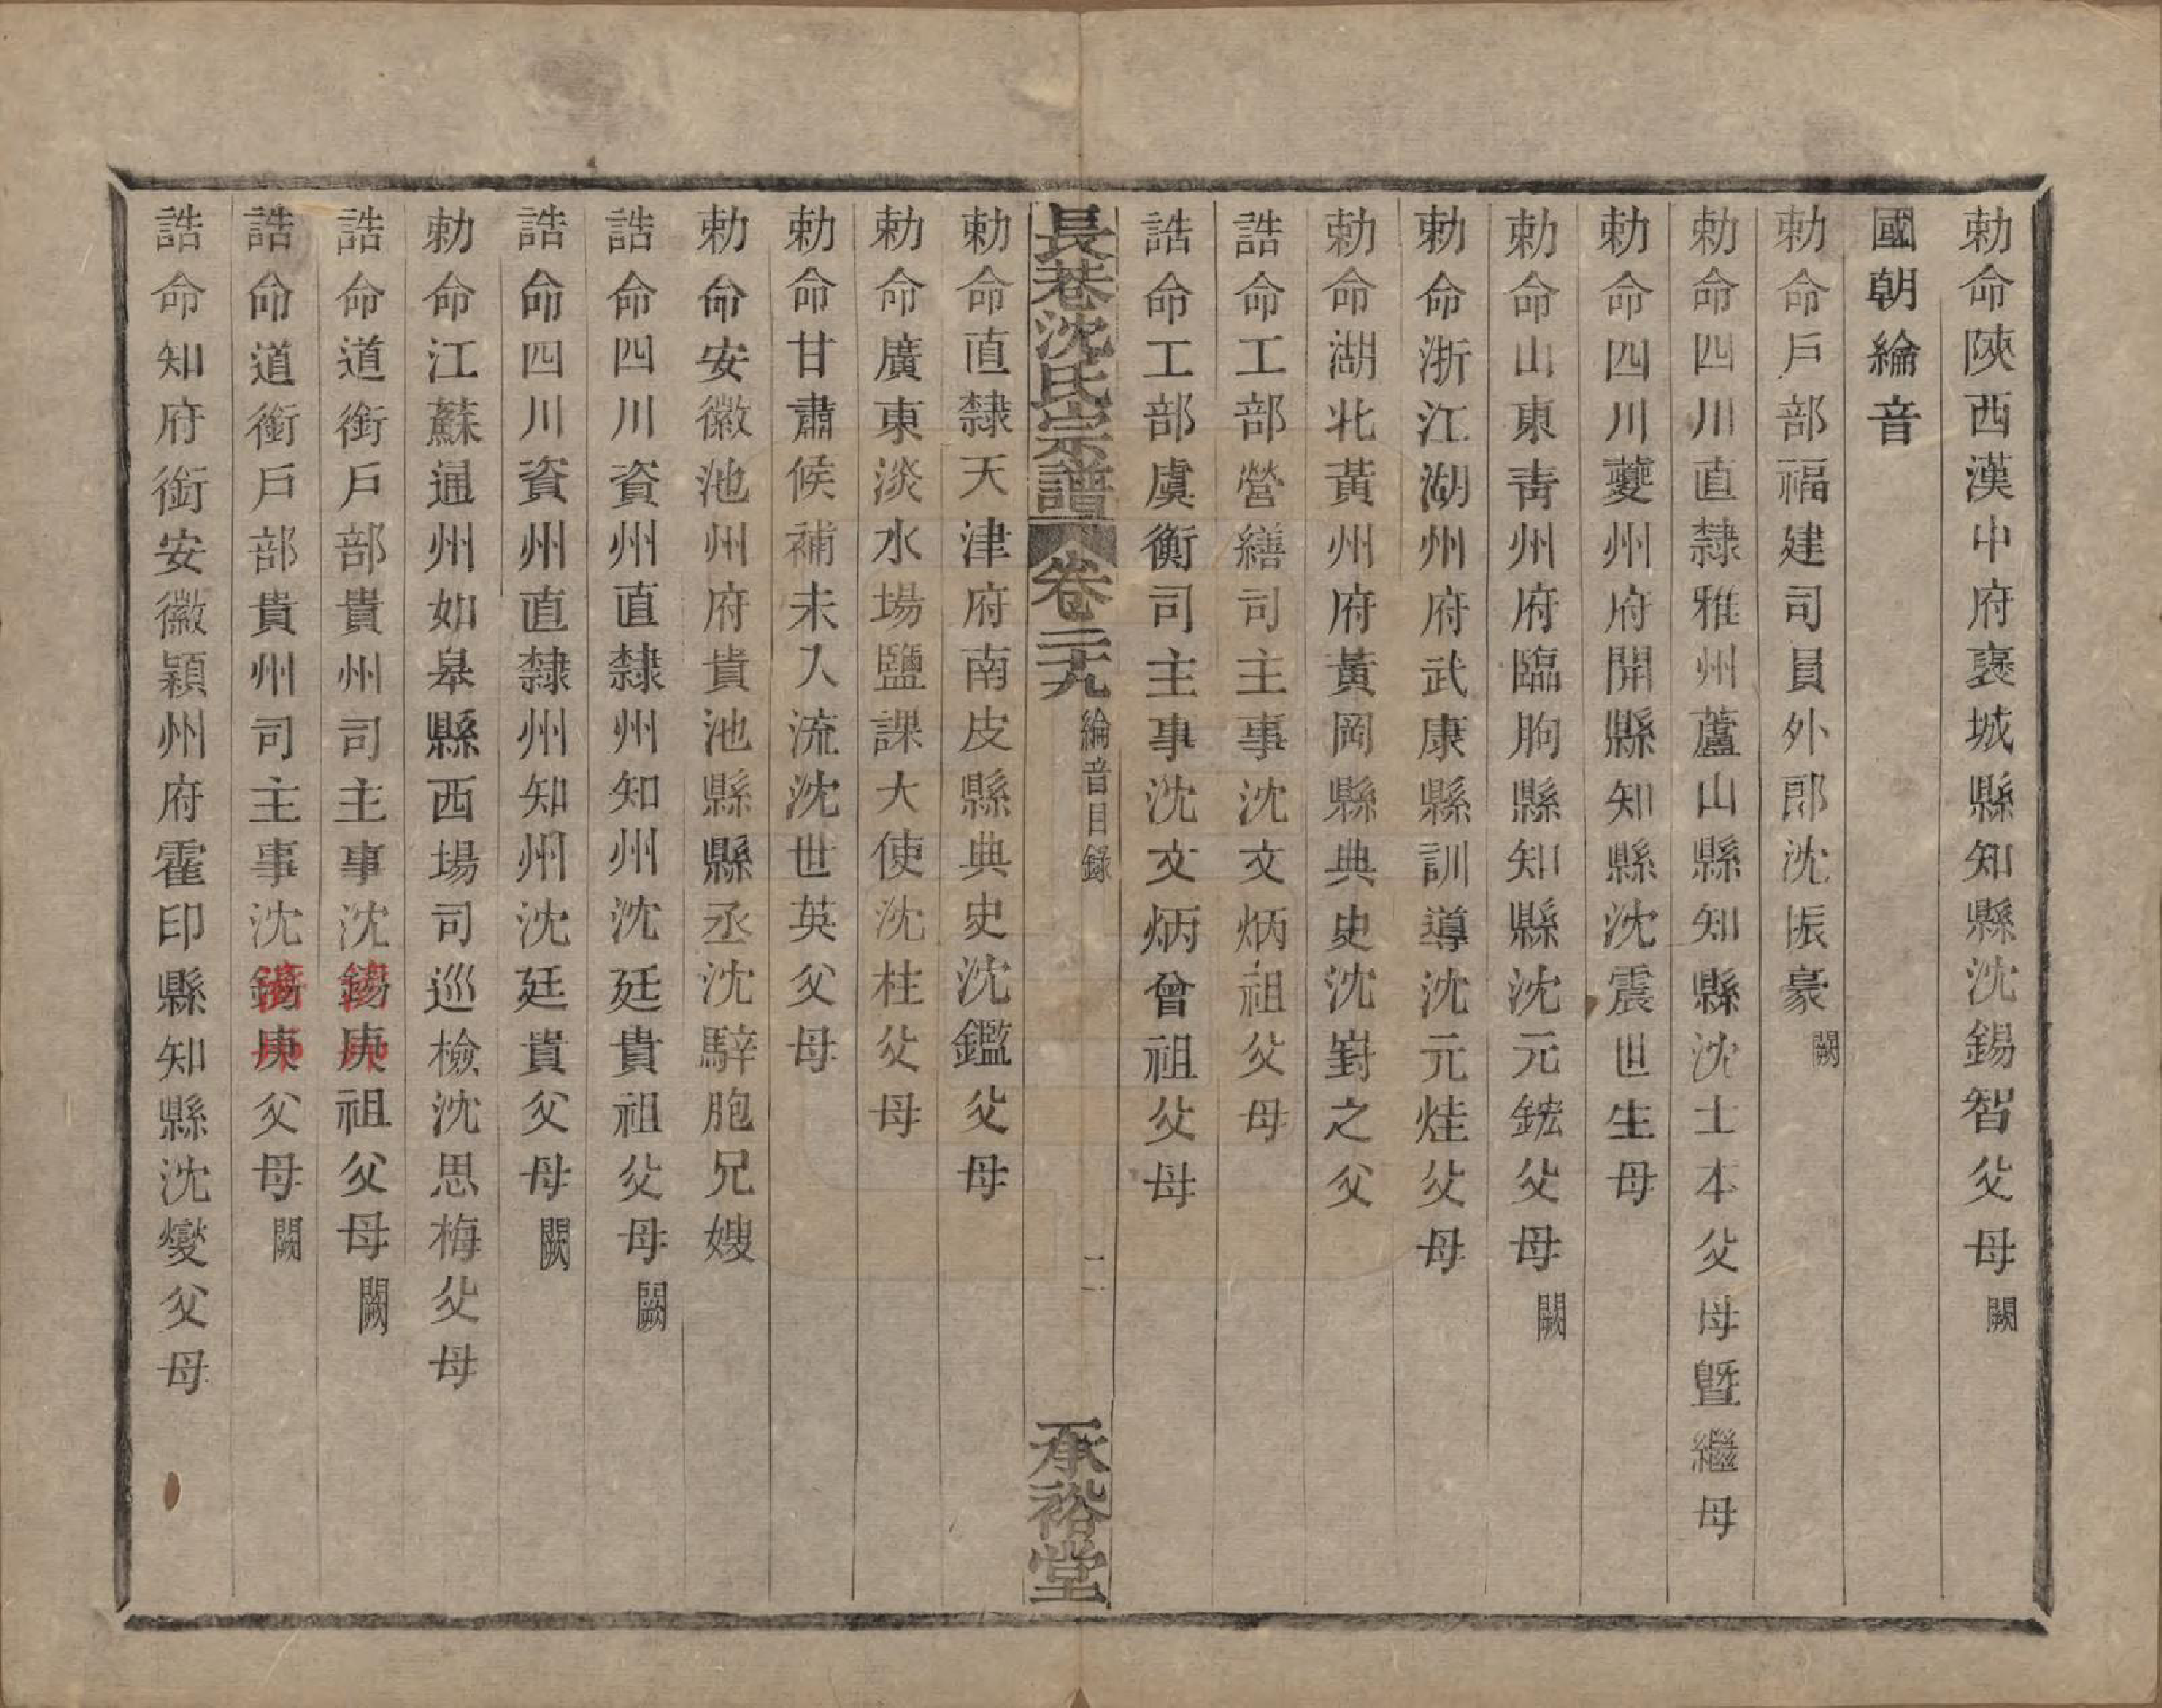 勅命陝西漢中府褒城縣知縣沈錫智父母闕
國朝綸音
勅命戶部福建司員外郎沈振豪闕
勅命四川直隸雅州蘆山縣知縣沈士本父母暨繼母
勅命四川夔州府開縣知縣沈震世生母
勅命山東青州府臨朐縣知縣沈元鋐父母闕
勅命浙江湖州府武康縣訓導沈元烓父母
勅命湖北黃州府黃岡縣典史沈對之父
誥命工部營繕司主事沈文炳祖父母
誥命工部虞衡司主事沈文炳曾祖父母
長巷沈氏宗譜 卷二十九 綸音目錄 二 承裕堂
勅命直隸天津府南皮縣典史沈鑑父母
勅命廣東淡水場鹽課大使沈柱父母
勅命甘肅候補未入流沈世英父母
勅命安徽池州府貴池縣縣丞沈騂胞兄嫂
誥命四川資州直隸州知州沈廷貴祖父母闕
誥命四川資州直隸州知州沈廷貴父母闕
勅命江蘇通州如皋縣西場司巡檢沈思梅父母
誥命道銜戶部貴州司主事沈錫庚祖父母闕
誥命道銜戶部貴州司主事沈錫庚父母闕
誥命知府銜安徽潁州府霍印縣知縣沈燮父母